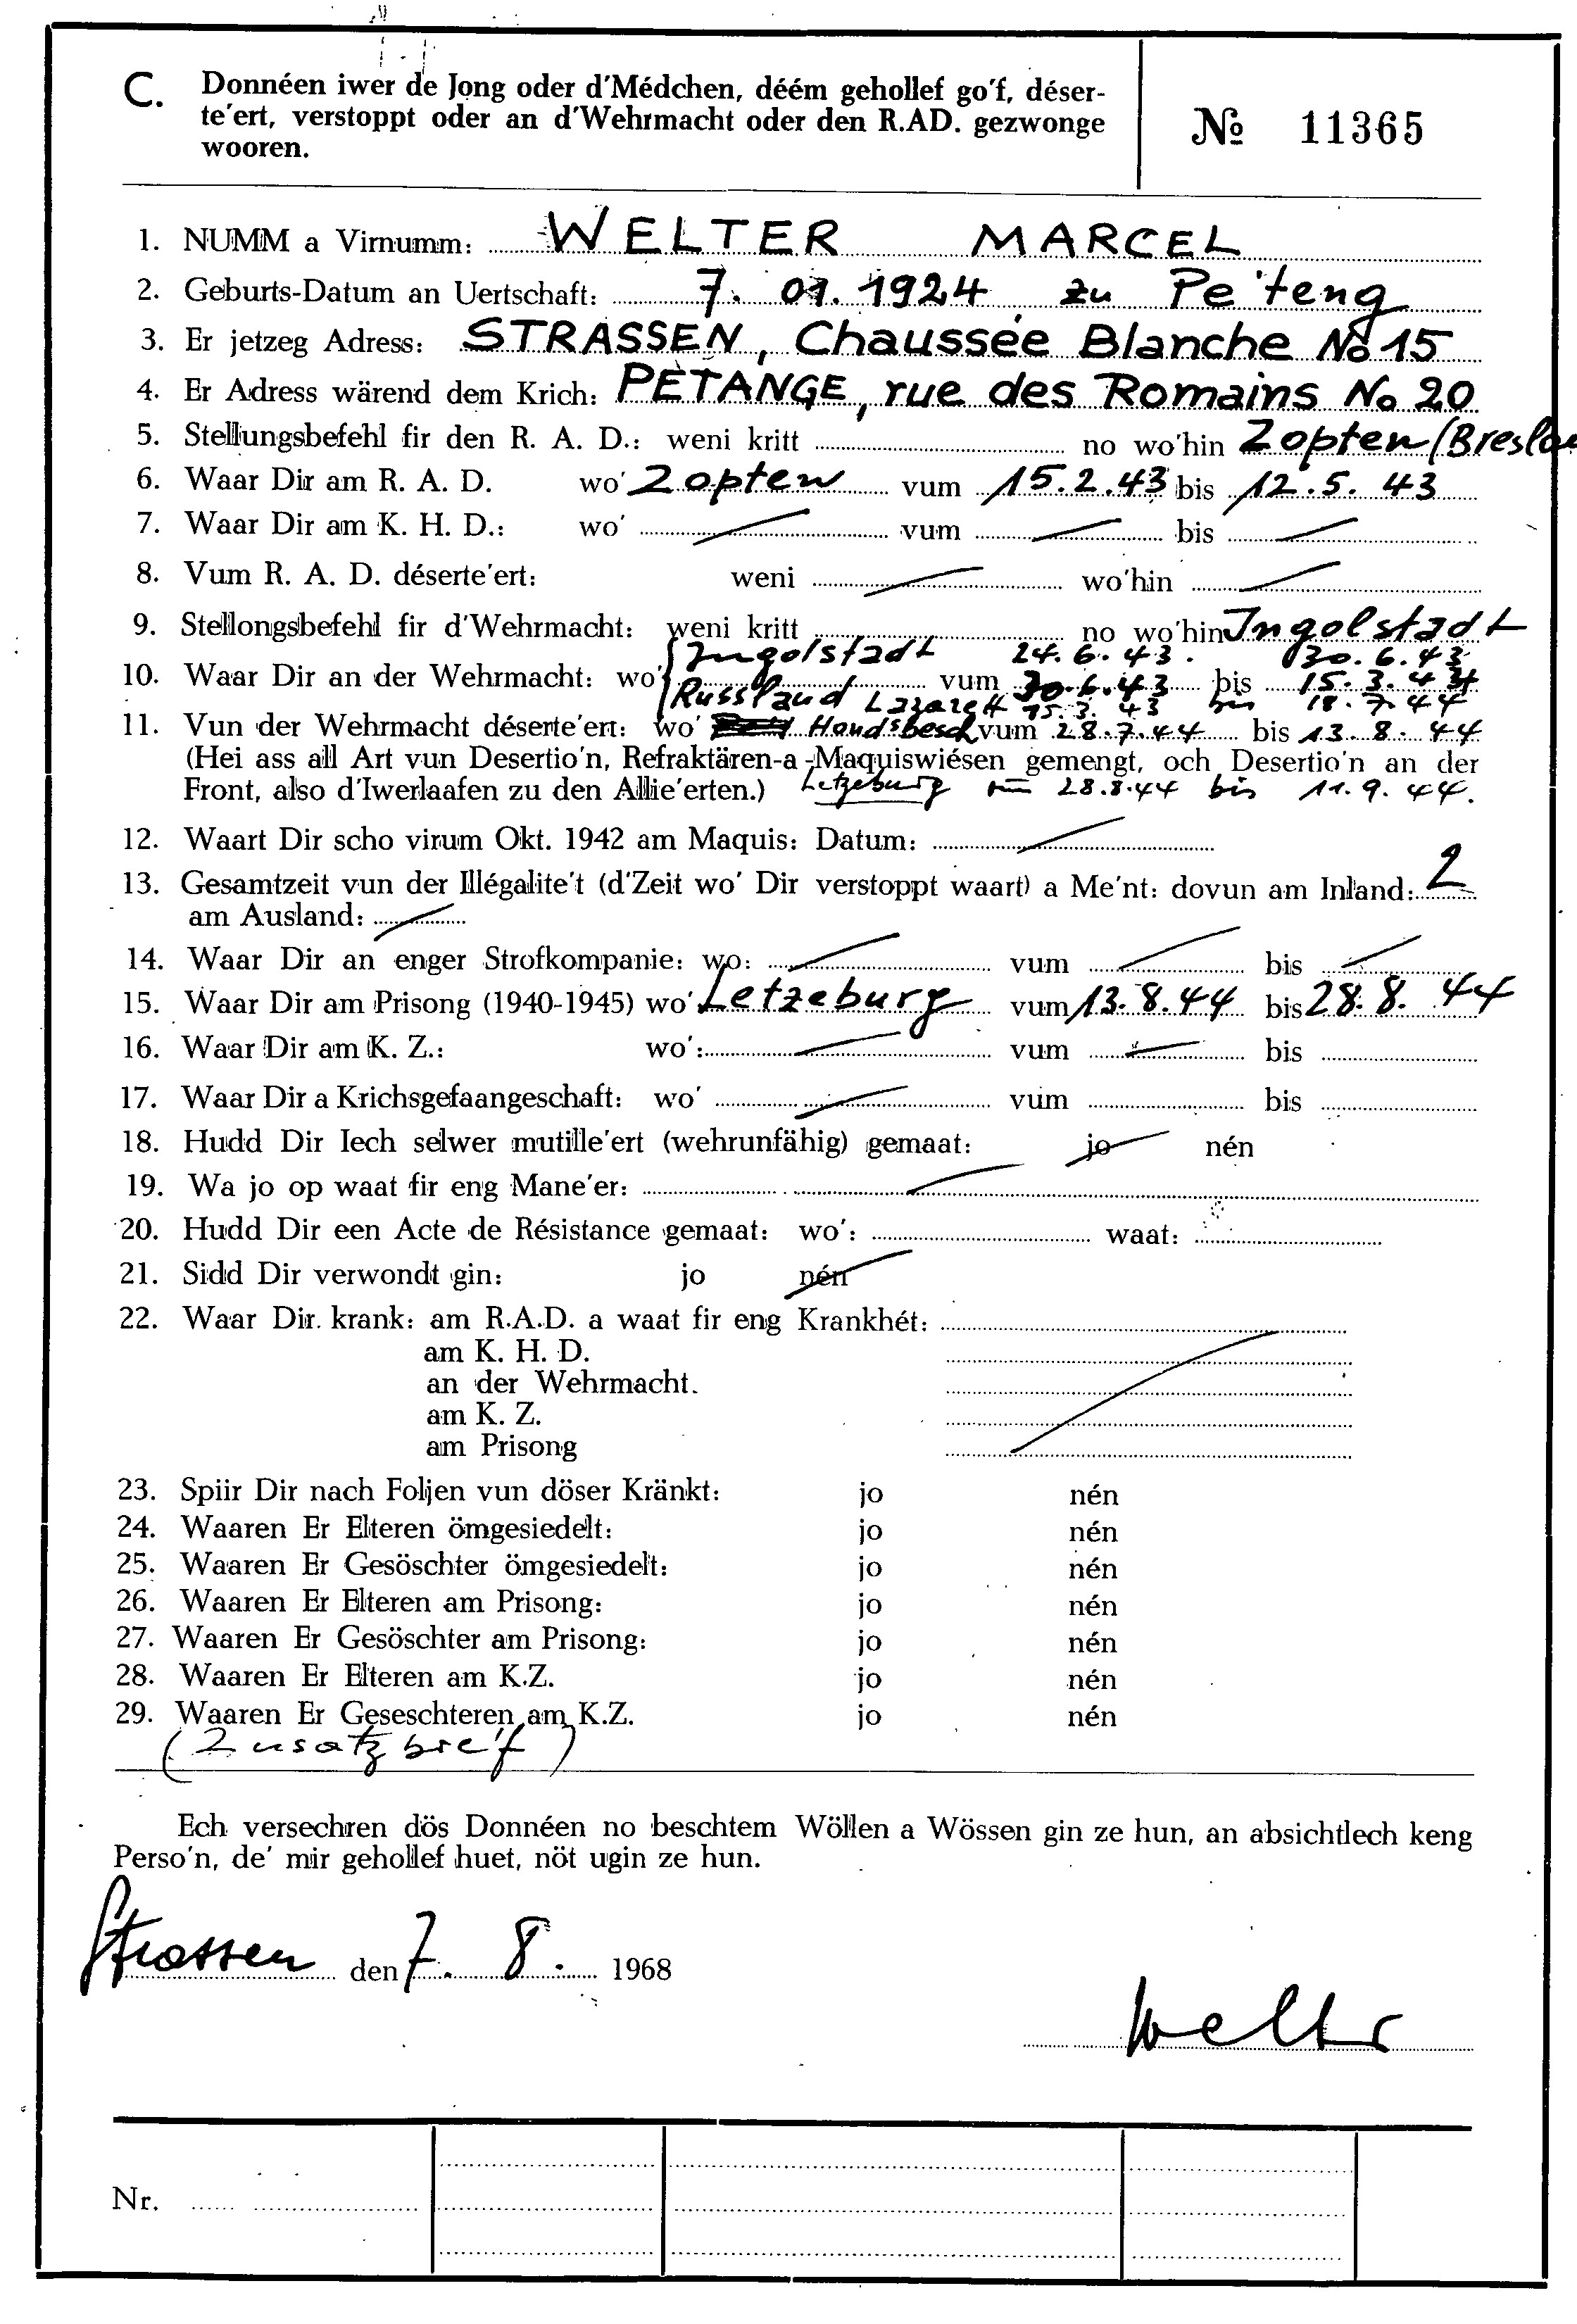 C. Donnéen iwer de Jong oder d'Médchen, déém gehollef go'f, déser-
te'ert, verstoppt oder an d'Wehrmacht oder den R.AD. gezwonge
wooren.
№ 11365
1. NUMM a Virnumm: WELTER MARCEL
2. Geburts-Datum an Uertschaft: 7. 01. 1924 zu Pe'teng
3. Er jetzeg Adress: STRASSEN, Chaussée Blanche No 15
4. Er Adress wärend dem Krich: PÉTANGE, rue des Romains No 20
5. Stellungsbefehl fir den R. A. D.: weni kritt no wo'hin Zopten (Breslau
6. Waar Dir am R. A. D. wo' Zopten vum 15.2.43 bis 12.5.43
7. Waar Dir am K. H. D.: wo' vum bis
8. Vum R. A. D. déserte'ert: weni wo'hin
9. Stellongsbefehl fir d'Wehrmacht: weni kritt no wo'hin Ingolstadt
Ingolstadt 24.6.43. 30.6.43
10. Waar Dir an der Wehrmacht: wo' vum 30.6.43 bis 15.3.44
Russland Lazarett 15.3.43 bis 18.7.44
11. Vun der Wehrmacht déserte'ert: wo' Hondsbesch vum 28.7.44 bis 13.8.44
(Hei ass all Art vun Desertio'n, Refraktären-a -Maquiswiésen gemengt, och Desertio'n an der
Front, also d'Iwerlaafen zu den Allie'erten.) Letzeburg 28.8.44 bis 11.9.44.
12. Waart Dir scho virum Okt. 1942 am Maquis: Datum:
13. Gesamtzeit vun der Illégalite't (d'Zeit wo' Dir verstoppt waart) a Me'nt: dovun am Inland: 2
am Ausland:
14. Waar Dir an enger Strofkompanie: wo: vum bis
15. Waar Dir am Prisong (1940-1945) wo' Letzeburg vum 13.8.44 bis 28.8.44
16. Waar Dir am K. Z.: wo': vum bis
17. Waar Dir a Krichsgefaangeschaft: wo' vum bis
18. Hudd Dir Iech selwer mutille'ert (wehrunfähig) gemaat: jo nén
19. Wa jo op waat fir eng Mane'er:
20. Hudd Dir een Acte de Résistance gemaat: wo': waat:
21. Sidd Dir verwondt gin: jo nén
22. Waar Dir. krank: am R.A.D. a waat fir eng Krankhét:
am K. H. D.
an der Wehrmacht.
am K. Z.
am Prisong
23. Spiir Dir nach Foljen vun döser Kränkt: jo nén
24. Waaren Er Elteren ömgesiedelt: jo nén
25. Waaren Er Gesöschter ömgesiedelt: jo nén
26. Waaren Er Elteren am Prisong: jo nén
27. Waaren Er Gesöschter am Prisong: jo nén
28. Waaren Er Elteren am K.Z. jo nén
29. Waaren Er Geseschteren am K.Z. jo nén
(Zusatzbre'f)
Ech versechren dös Donnéen no beschtem Wöllen a Wössen gin ze hun, an absichtlech keng
Perso'n, de' mir gehollef huet, nöt ugin ze hun.
Strassen den 7. 8. 1968
Welter
Nr.